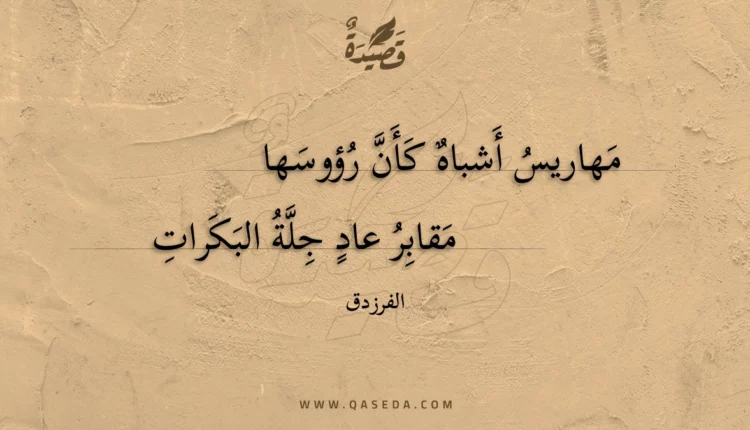 قَصِيدَةٌ
مَهاريسُ أَشباهٌ كَأَنَّ رُؤوسَها
مَقابِرُ عادٍ جِلَّةُ البَكَراتِ
الفرزدق
WWW.QASEDA.COM